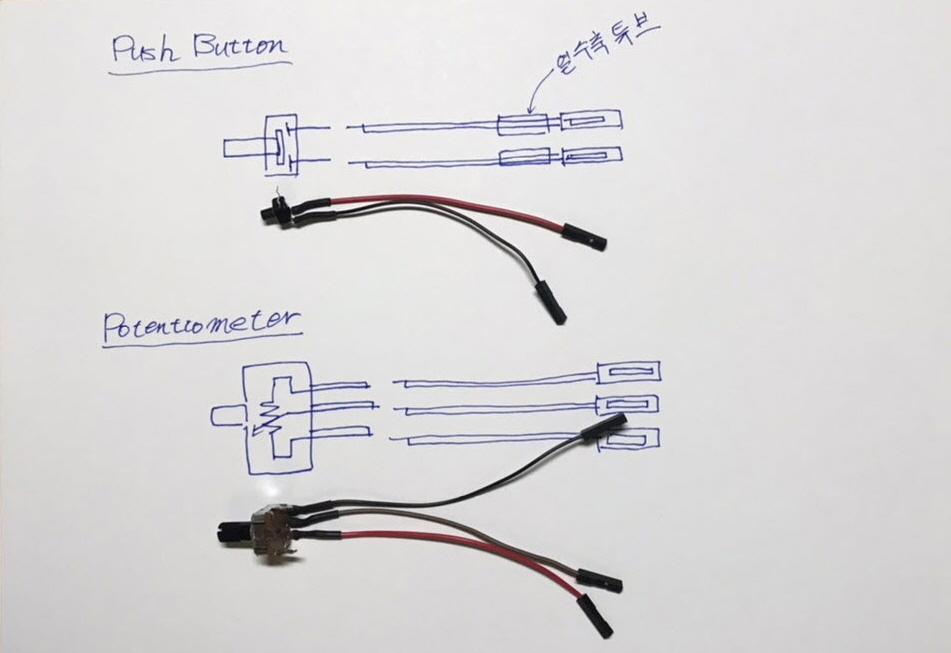 Push Button
열수축 튜브
Potentiometer